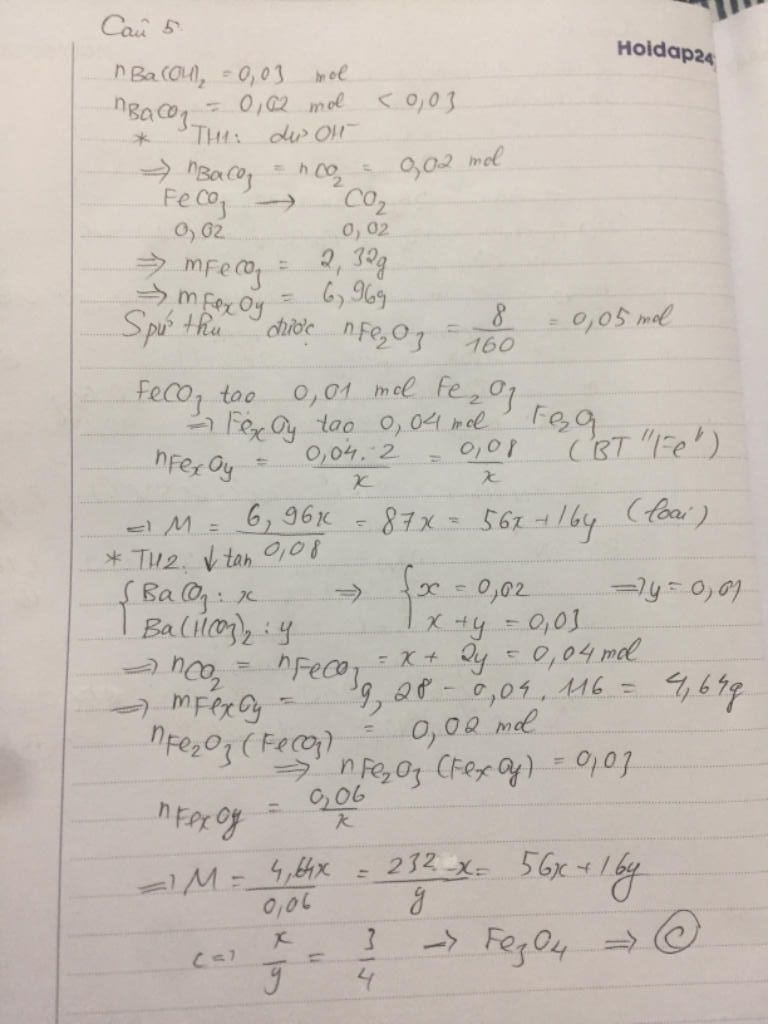 Câu 5.
Hoidap24
nBa(OH)₂ = 0,03 mol
nBaCO₃ = 0,02 mol < 0,03
* TH1: dư OH⁻
⇒ nBaCO₃ = nCO₂ = 0,02 mol
FeCO₃ → CO₂
0,02 0,02
⇒ mFeCO₃ = 2,32g
⇒ mFexOy = 6,96g
Spứ thu được nFe₂O₃ = 8/160 = 0,05 mol
FeCO₃ tạo 0,01 mol Fe₂O₃
⇒ FexOy tạo 0,04 mol Fe₂O₃
nFexOy = 0,04.2/x = 0,08/x (BT "Fe")
⇒ M = 6,96x/0,08 = 87x = 56x + 16y (loại)
* TH2. ↓ tan
{BaCO₃: x ⇒ {x = 0,02 ⇒ y = 0,01
Ba(HCO₃)₂: y x + y = 0,03
⇒ nCO₂ = nFeCO₃ = x + 2y = 0,04 mol
⇒ mFexOy = 9,28 - 0,04.116 = 4,64g
nFe₂O₃ (FeCO₃) = 0,02 mol
⇒ nFe₂O₃ (FexOy) = 0,03
nFexOy = 0,06/x
⇒ M = 4,64x/0,06 = 232x/9 = 56x + 16y
<=> x/y = 3/4 → Fe₃O₄ ⇒ C